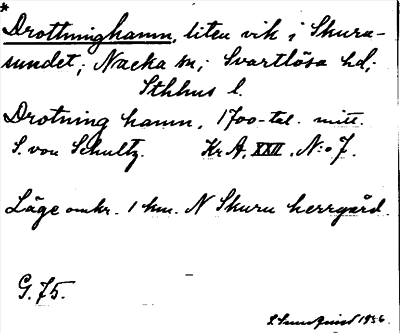 *
Drottninghamn, liten vik i Skuru-
sundet; Nacka sn; Svartlösa hd;
Sthlms l.
Drotning hamn, 1700-tal. mitt.
S. von Schultz. Kr A, XXII, N:o 7.
Läge omkr. 1 km. N Skuru herrgård.
G. 75.
1936.